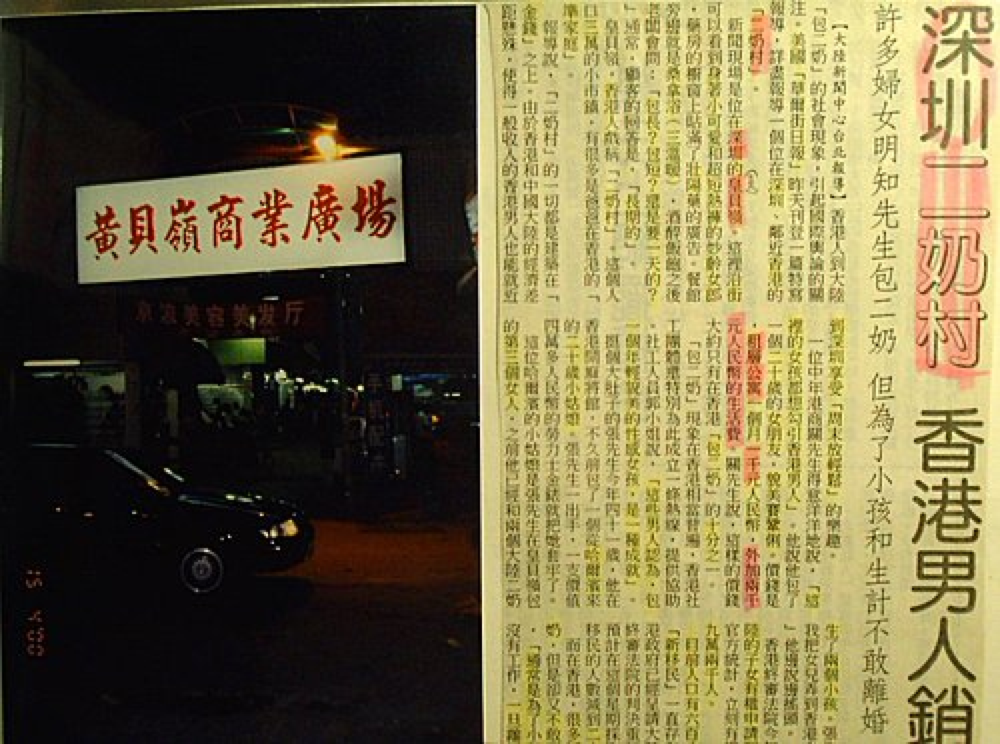 黃貝嶺商業廣場
京浪美容美发厅
15 4 '00
深圳二奶村 香港男人銷
許多婦女明知先生包二奶 但為了小孩和生計不敢離婚
【大陸新聞中心台北報導】香港人到大陸
「包二奶」的社會現象，引起國際輿論的關
注。美國「華爾街日報」昨天刊登一篇特寫
報導，詳盡報導一個位在深圳、鄰近香港的
「二奶村」。
新聞現場是位在深圳的皇貝嶺。這裡沿街
可以看到身著小可愛和超短熱褲的妙齡女郎
，藥房的櫥窗上貼滿了壯陽藥的廣告。餐館
旁邊就是桑拿浴（三溫暖），酒醉飯飽之後
老闆會問：「包長？包短？還是要一天的？
」通常，顧客的回答是，「長期的」。
皇貝嶺，香港人戲稱「二奶村」。這個人
口三萬的小市鎮，有很多是爸爸在香港的「
準家庭」。
報導說，「二奶村」的一切都是建築在「
金錢」之上。由於香港和中國大陸的經濟差
距懸殊，使得一般收入的香港男人也能就近
到深圳享受「周末放輕鬆」的樂趣。
一位中年港商關先生得意洋洋地說，「這
裡的女孩都想勾引香港男人」。他說他包了
一個二十歲的女朋友，貌美賽鞏俐。價錢是
，租層公寓一個月一千元人民幣，外加兩千
元人民幣的生活費。關先生說，這樣的價錢
大約只有在香港「包二奶」的十分之一。
「包二奶」現象在香港相當普遍，香港社
工團體還特別為此成立一條熱線，提供協助
。社工人員郭小姐說，「這些男人認為，包
一個年輕貌美的性感女孩，是一種成就」。
挺個大肚子的張先生今年四十一歲，他在
香港開麻將館，不久前包了一個從哈爾濱來
的二十歲小姑娘。張先生一出手，一支價值
四萬多人民幣的勞力士金錶就把她套牢了。
這位哈爾濱的小姑娘是張先生在皇貝嶺包
的第三個女人，之前他已經和兩個大陸二奶
生了兩個小孩。張
我把女兒弄到香港
」他邊說邊搖頭。
香港終審法院今
陸的子女有權申請
官方統計，立刻有
九萬兩千人。
目前人口有六百
「新移民」一直存
港政府已經呈請大
終審法院的判決重
預計在這個星期採
移民的人數減到二
而在香港，很多
奶，但是卻又不敢
，「通常是為了小
沒有工作，一旦離